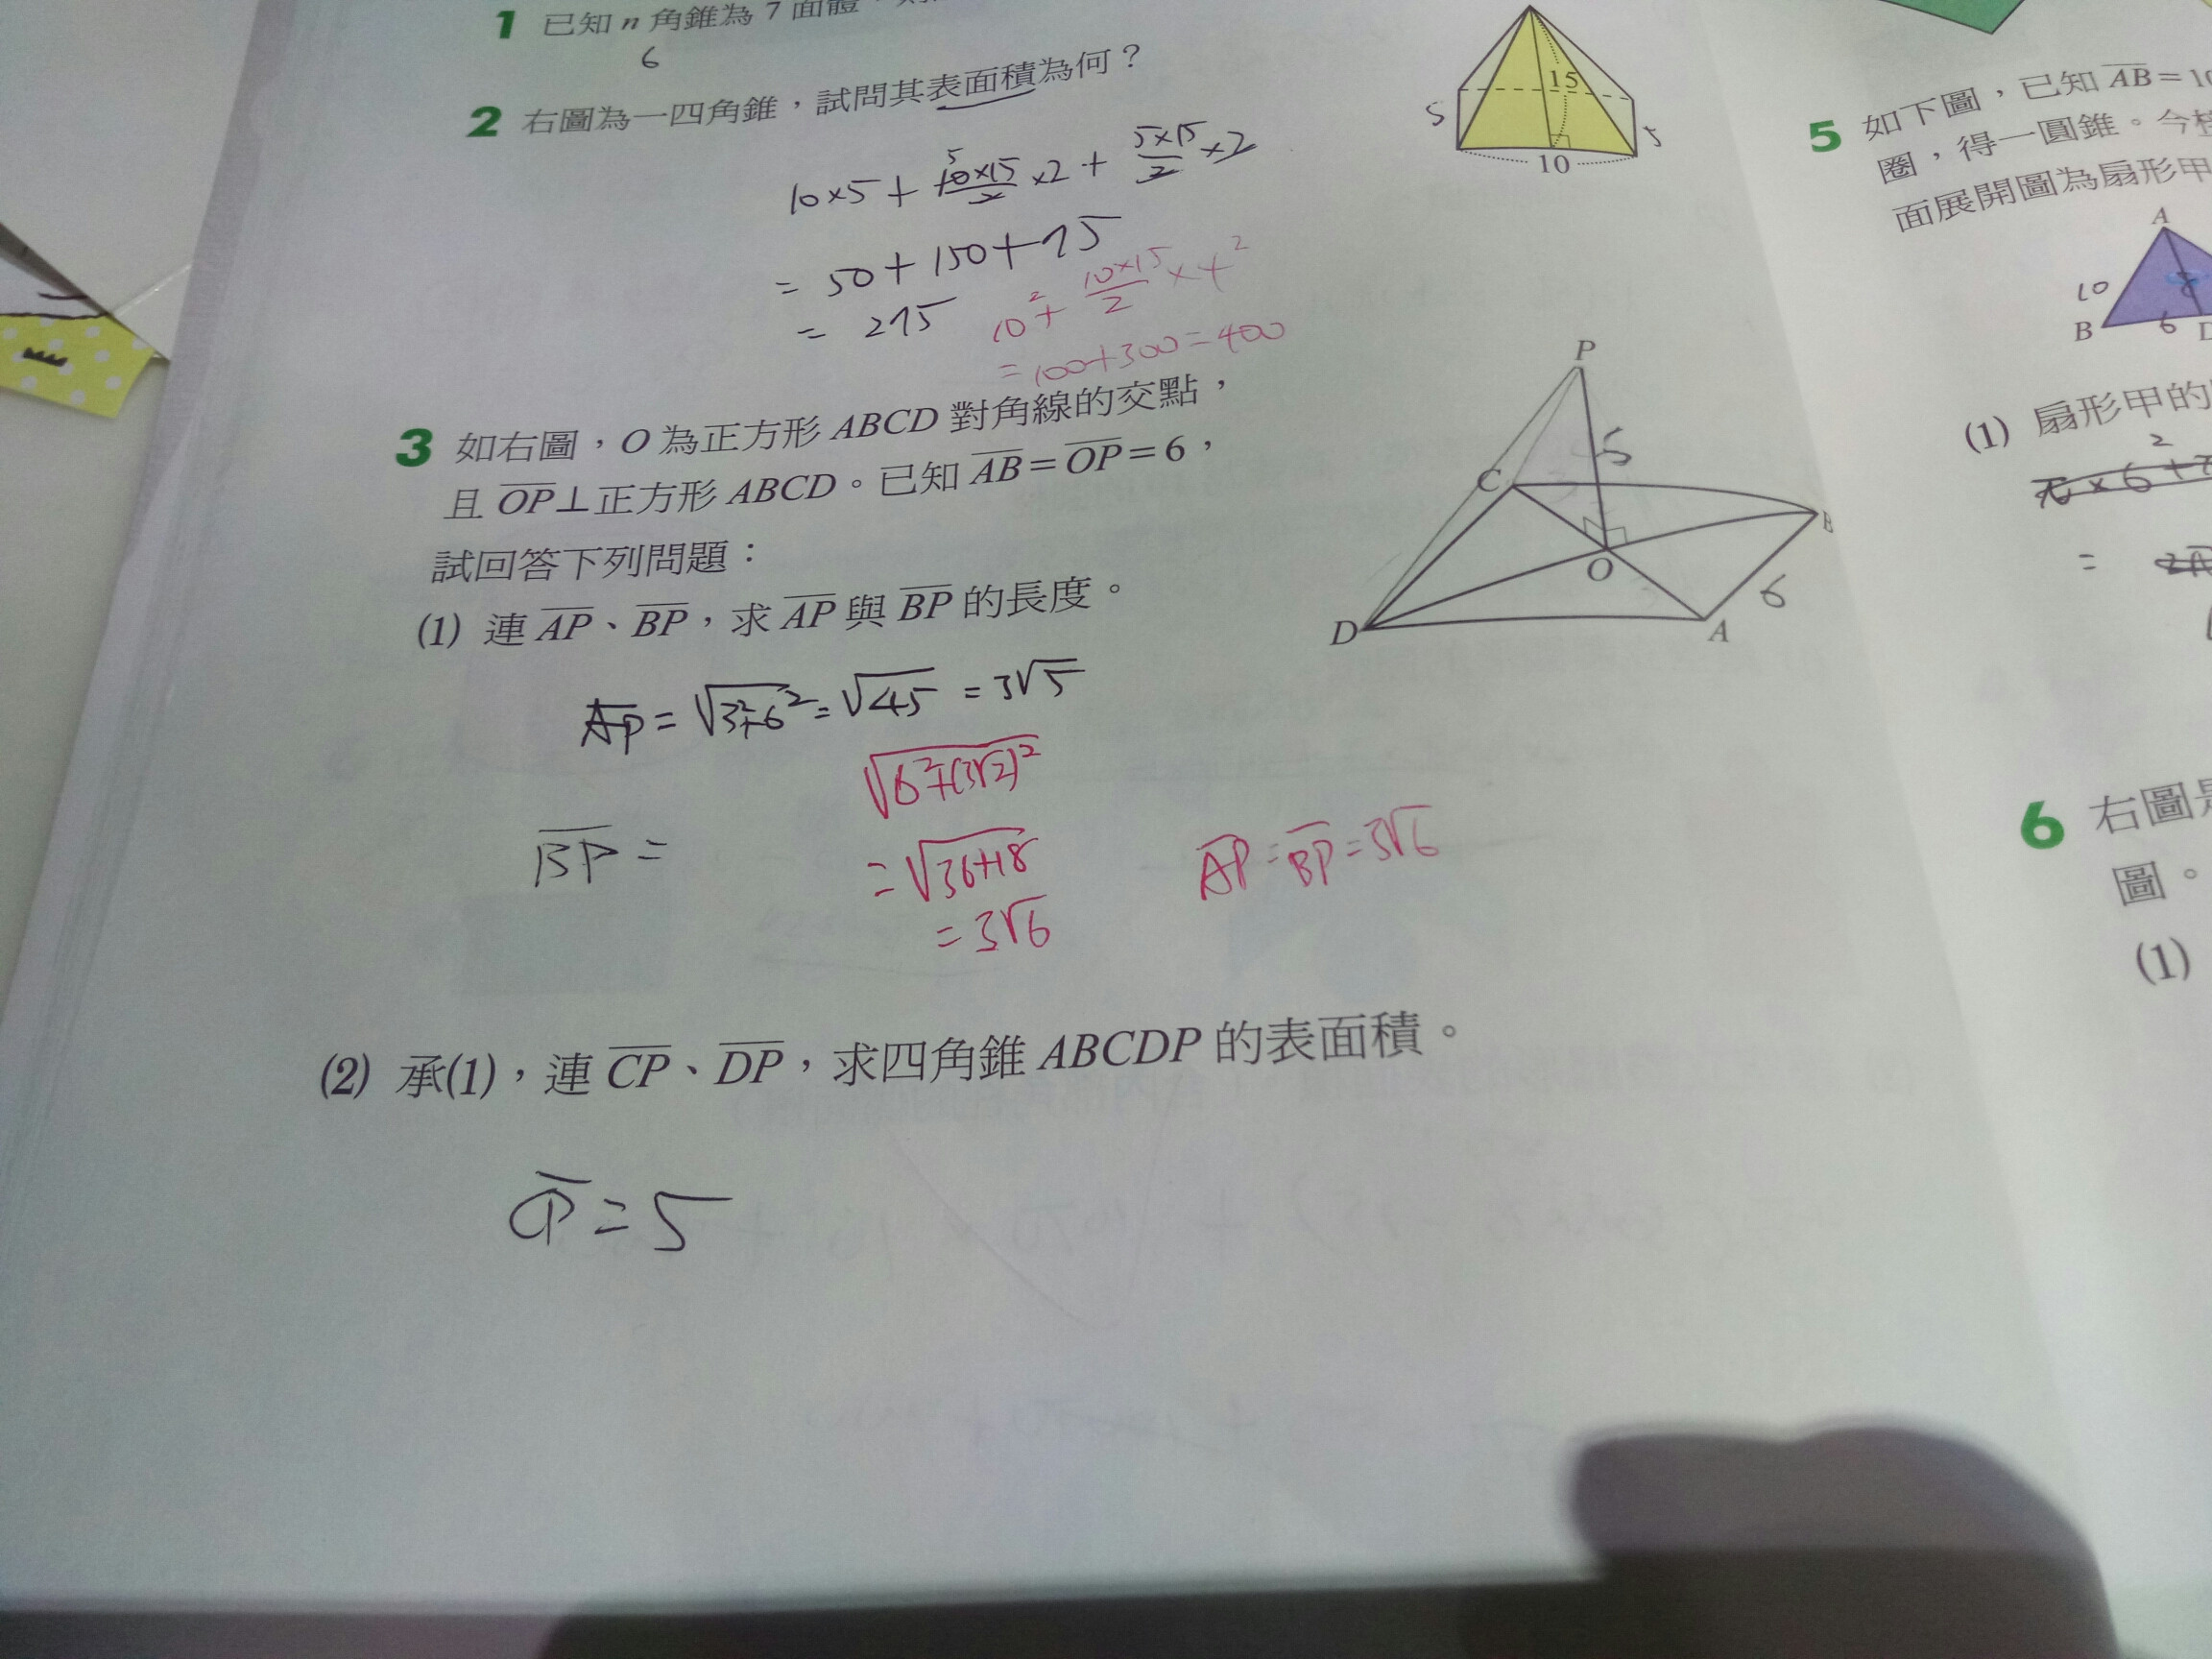 1 已知 n 角錐為 7 面體,
6
2 右圖為一四角錐,試問其表面積為何?
15
10
5
5
10×5 + 10×15/2 ×2 + 5×15/2 ×2
5
= 50 + 150 + 75
= 275
10² + 10×15/2 ×4 2
= 100+300 = 400
3 如右圖,O 為正方形 ABCD 對角線的交點,
且 OP⊥正方形 ABCD。已知 AB=OP=6,
試回答下列問題:
(1) 連 AP、BP,求 AP 與 BP 的長度。
P
5
C
O
6
D
A
AP = √3²+6² = √45 = 3√5
√6²+(3√2)²
BP =
= √36+18
= 3√6
AP = BP = 3√6
(2) 承(1),連 CP、DP,求四角錐 ABCDP 的表面積。
CP = 5
5 如下圖,已知 AB=10
圈,得一圓錐。今
面展開圖為扇形甲
A
10
B
6
(1) 扇形甲的
π×6²+
=
6 右圖
圖。
(1)